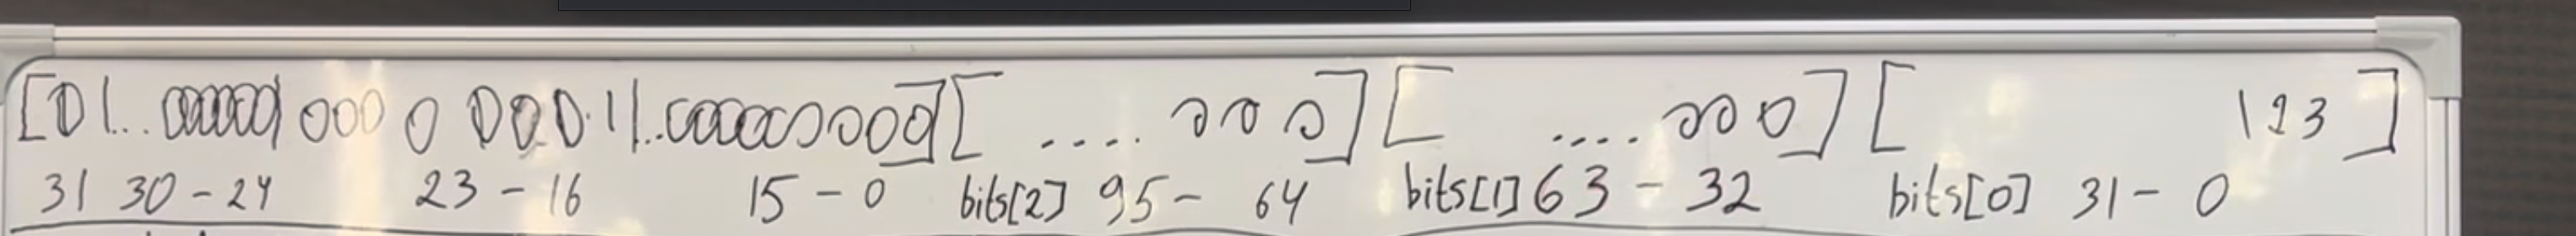 [01...0000000 000 0 000.11..0000000000][ ....000][ ....000][ 123]
31 30-24 23-16 15-0 bits[2] 95-64 bits[1] 63-32 bits[0] 31-0